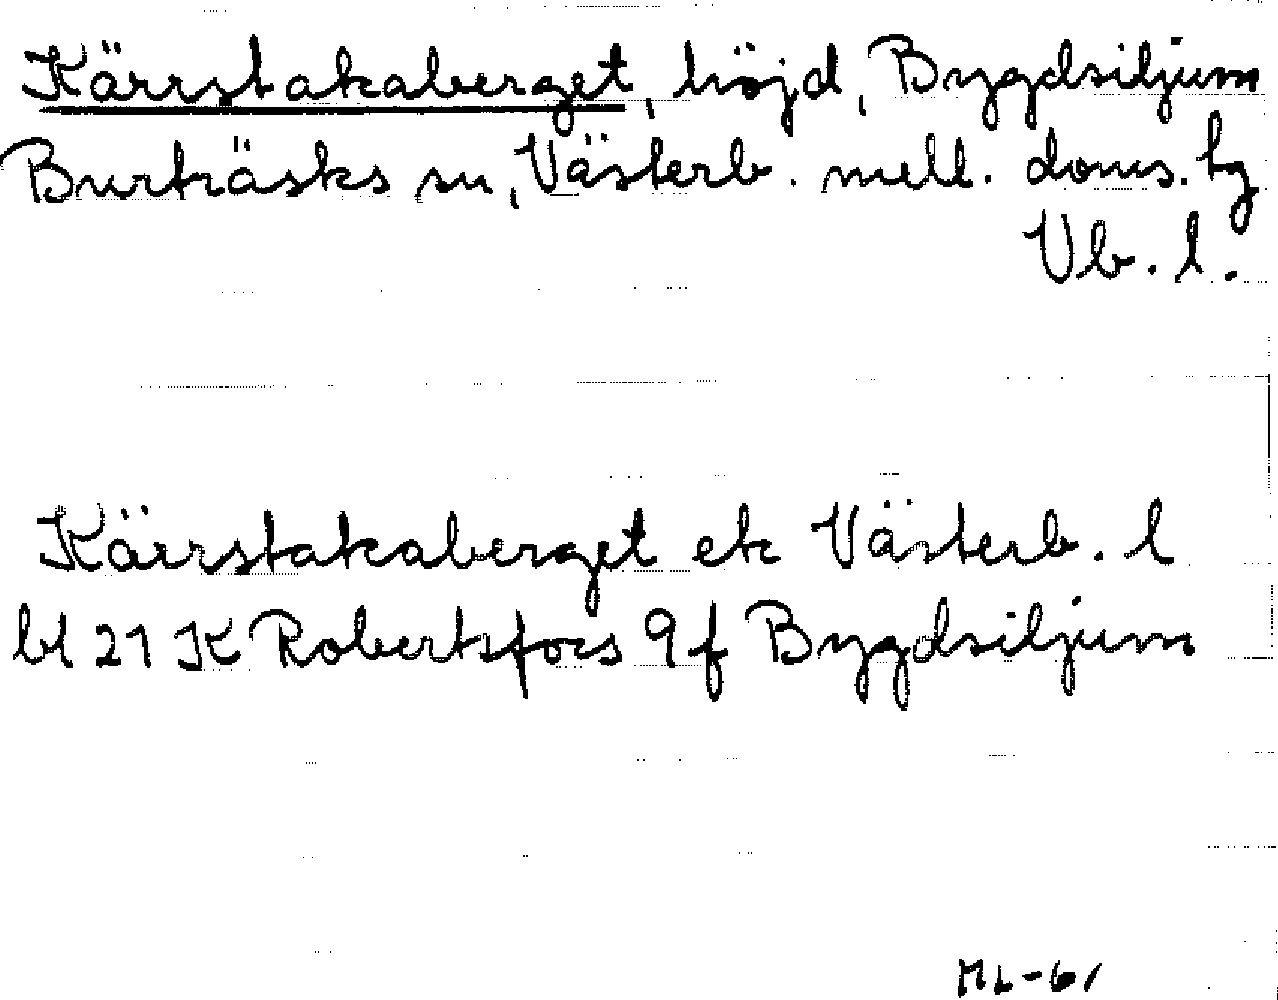 Kärrstakaberget, höjd, Bygdsiljum
Burträsks sn, Västerb. mell. doms. tg
Vb. l.
Kärrstakaberget ek Västerb. l
bl 21 K Robertsfors 9 f Bygdsiljum
ML-61